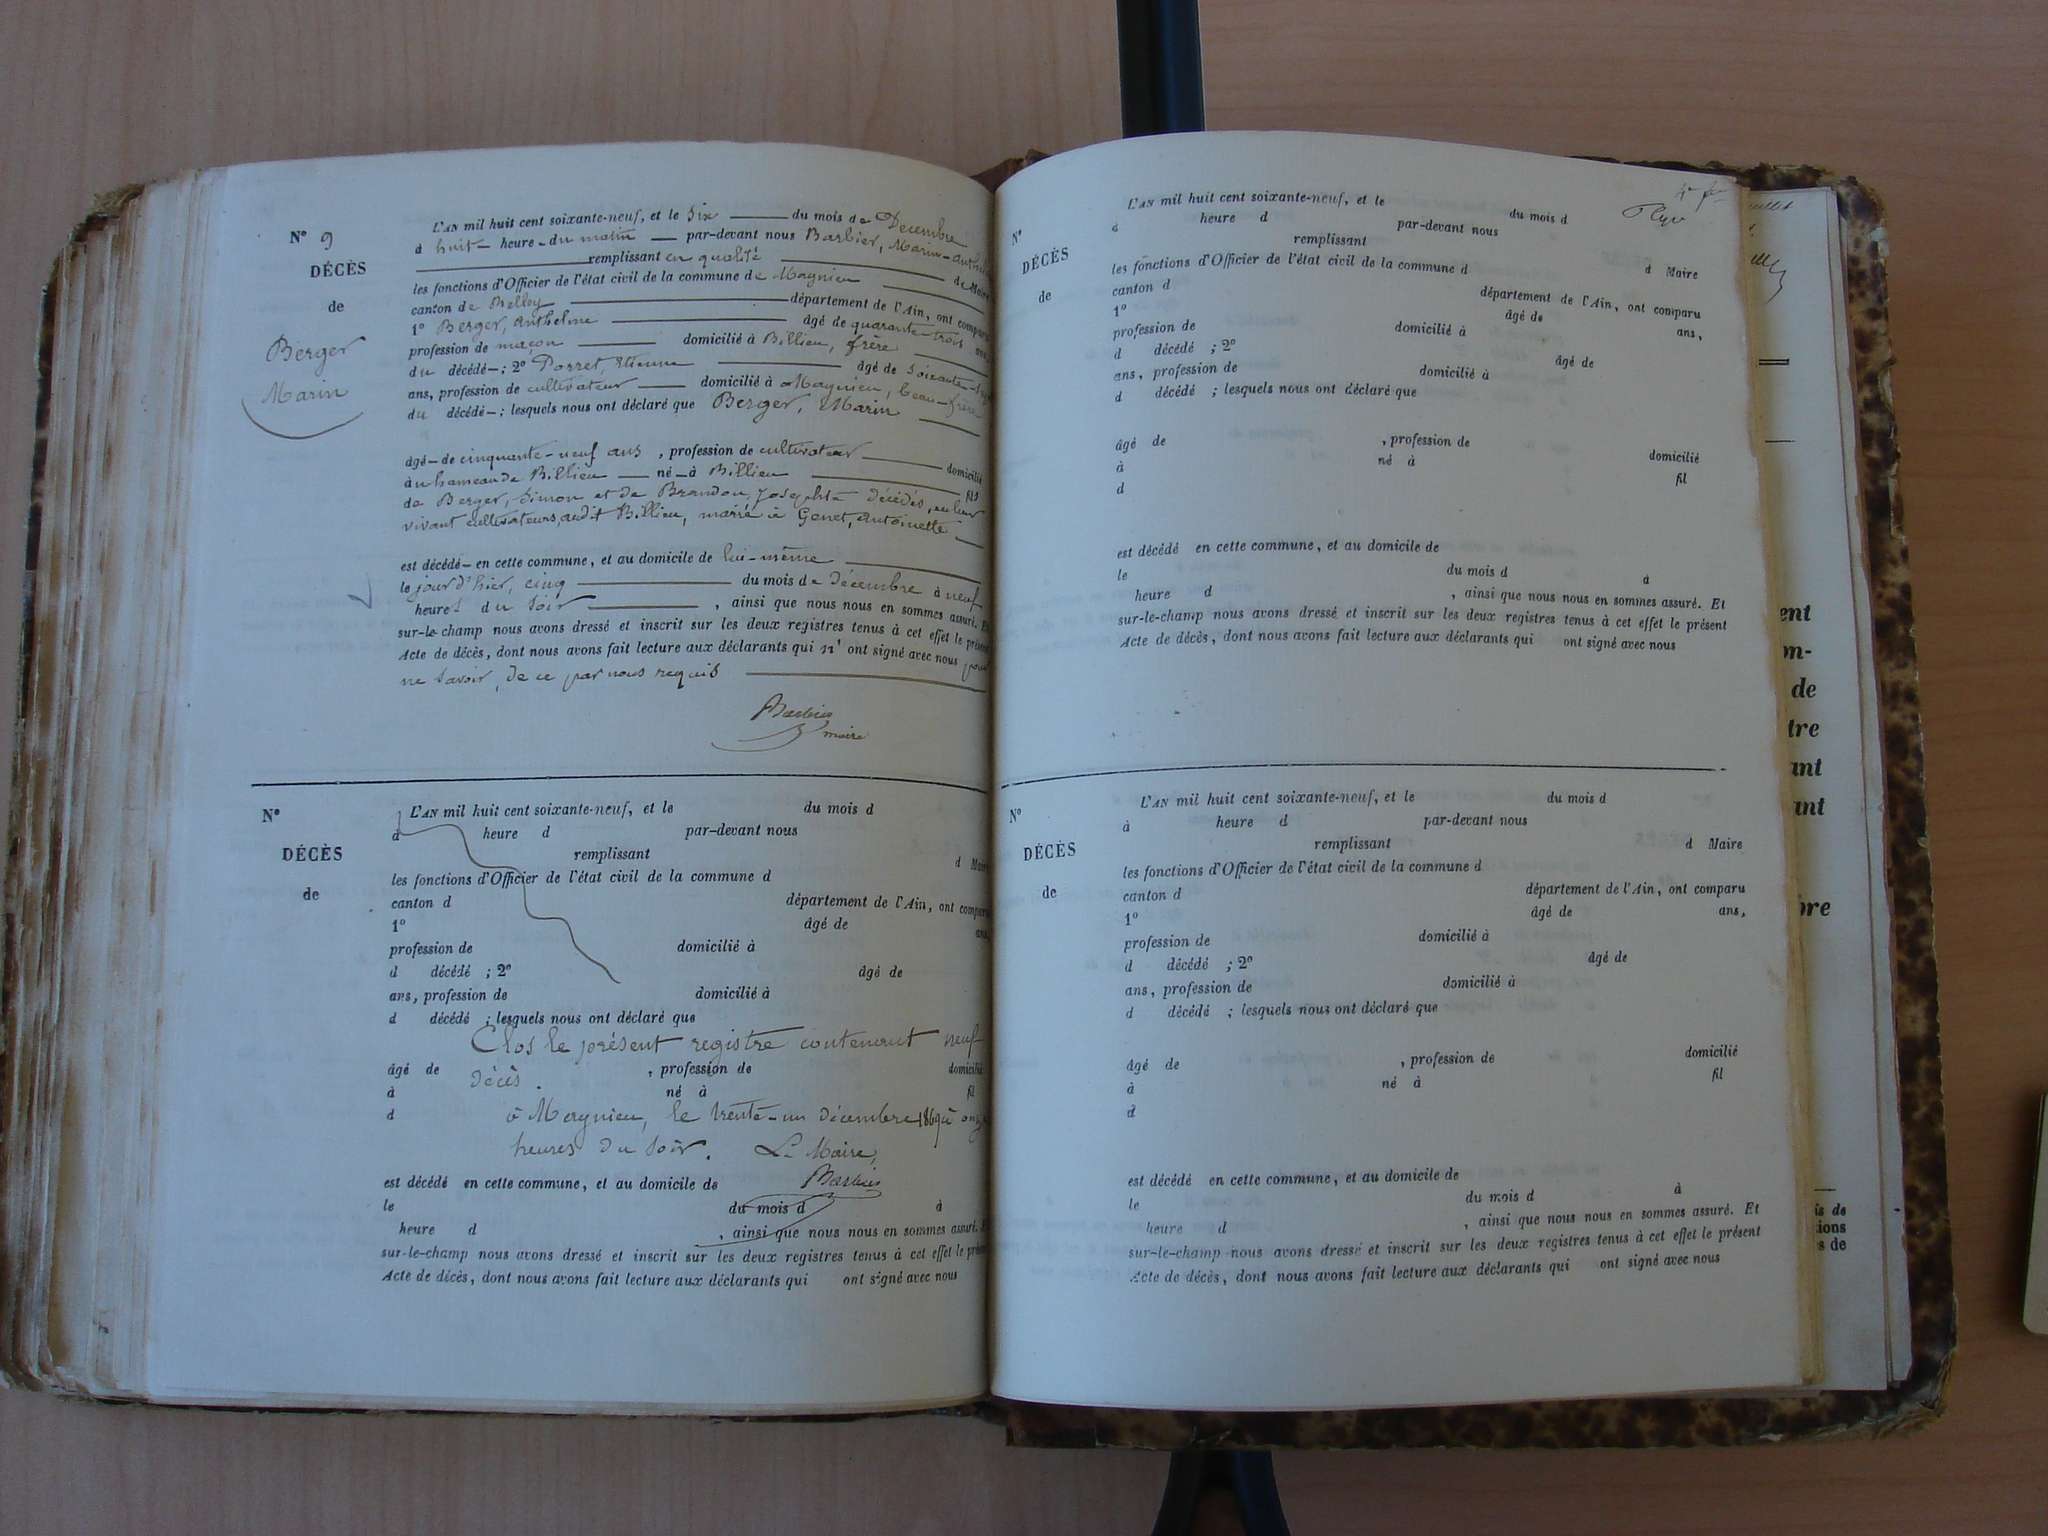 N° 9
DÉCÈS
de
Berger
Marin
L'AN mil huit cent soixante-neuf, et le six du mois de Décembre
à huit heure du matin par-devant nous Barbier, Marin-Anthelme
remplissant en qualité de Maire
les fonctions d'Officier de l'état civil de la commune de Magnieu
canton de Belley département de l'Ain, ont comparu
1° Berger, Anthelme âgé de quarante-trois ans,
profession de maçon domicilié à Billieu, frère
du décédé ; 2° Porret, Etienne âgé de soixante-
ans, profession de cultivateur domicilié à Magnieu, beau-frère
du décédé ; lesquels nous ont déclaré que Berger, Marin
âgé de cinquante-neuf ans, profession de cultivateur domicilié
à u hameau de Billieu né à Billieu fils
de Berger, Simon et de Brandon, Josephte décédés, en leur
vivant cultivateurs, audit Billieu, marié à Genet, Antoinette
est décédé en cette commune, et au domicile de lui-même
le jour d'hier, cinq du mois de Décembre à neuf
heures du soir, ainsi que nous nous en sommes assuré. Et
sur-le-champ nous avons dressé et inscrit sur les deux registres tenus à cet effet le présent
Acte de décès, dont nous avons fait lecture aux déclarants qui n'ont signé avec nous pour
ne savoir, de ce par nous requis
Barbier
maire
N°
DÉCÈS
de
L'AN mil huit cent soixante-neuf, et le du mois d
à heure d par-devant nous
remplissant d Maire
les fonctions d'Officier de l'état civil de la commune d
canton d département de l'Ain, ont comparu
1° âgé de ans,
profession de domicilié à
d décédé ; 2° âgé de
ans, profession de domicilié à
d décédé ; lesquels nous ont déclaré que
Clos le présent registre contenant neuf
âgé de , profession de domicilié
décès.
à né à fil
d
à Magnieu, le trente-un décembre 1869 à onze
heures du soir. Le Maire,
Barbier
est décédé en cette commune, et au domicile de
le du mois d à
heure d , ainsi que nous nous en sommes assuré. Et
sur-le-champ nous avons dressé et inscrit sur les deux registres tenus à cet effet le présent
Acte de décès, dont nous avons fait lecture aux déclarants qui ont signé avec nous
N°
DÉCÈS
de
L'AN mil huit cent soixante-neuf, et le du mois d
à heure d par-devant nous
remplissant d Maire
les fonctions d'Officier de l'état civil de la commune d
canton d département de l'Ain, ont comparu
1° âgé de ans,
profession de domicilié à
d décédé ; 2° âgé de
ans, profession de domicilié à
d décédé ; lesquels nous ont déclaré que
âgé de , profession de domicilié
à né à fil
d
est décédé en cette commune, et au domicile de
le du mois d à
heure d , ainsi que nous nous en sommes assuré. Et
sur-le-champ nous avons dressé et inscrit sur les deux registres tenus à cet effet le présent
Acte de décès, dont nous avons fait lecture aux déclarants qui ont signé avec nous
N°
DÉCÈS
de
L'AN mil huit cent soixante-neuf, et le du mois d
à heure d par-devant nous
remplissant d Maire
les fonctions d'Officier de l'état civil de la commune d
canton d département de l'Ain, ont comparu
1° âgé de ans,
profession de domicilié à
d décédé ; 2° âgé de
ans, profession de domicilié à
d décédé ; lesquels nous ont déclaré que
âgé de , profession de domicilié
à né à fil
d
est décédé en cette commune, et au domicile de
le du mois d à
heure d , ainsi que nous nous en sommes assuré. Et
sur-le-champ nous avons dressé et inscrit sur les deux registres tenus à cet effet le présent
Acte de décès, dont nous avons fait lecture aux déclarants qui ont signé avec nous